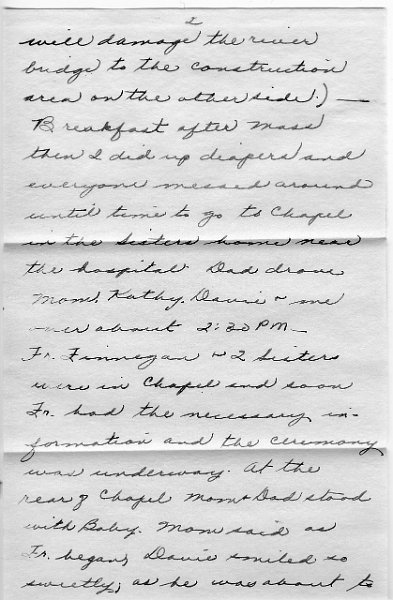 2
will damage the river
bridge to the construction
area on the other side.) —
Breakfast after Mass
then I did up diapers and
everyone messed around
until time to go to Chapel
in the Sisters home near
the hospital. Dad drove
Mom, Kathy, Davie & me
over about 2:30 PM —
Fr. Finnegan & 2 Sisters
were in Chapel and soon
Fr. had the necessary in-
formation and the ceremony
was underway. At the
rear of Chapel Mom & Dad stood
with Baby. Mom said as
Fr. began, Davie smiled so
sweetly; as he was about to